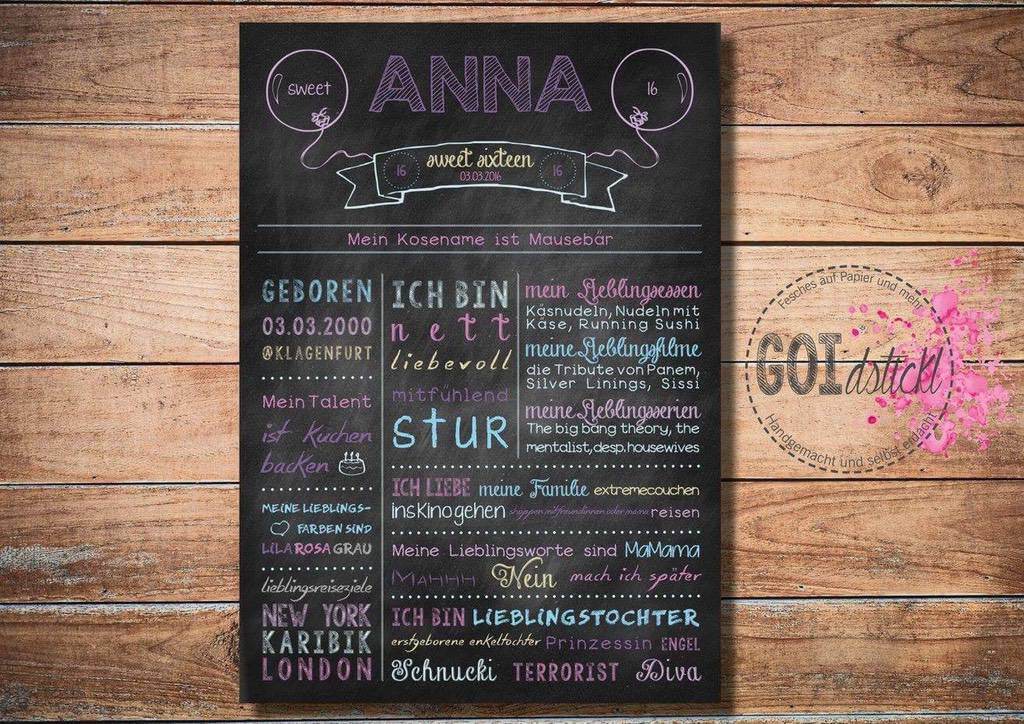 sweet
ANNA
16
sweet sixteen
16
03.03.2016
16
Mein Kosename ist Mausebär
GEBOREN
03.03.2000
@KLAGENFURT
Mein Talent
ist Kuchen
backen
MEINE LIEBLINGS-
FARBEN SIND
LILA ROSA GRAU
lieblingsreiseziele
NEW YORK
KARIBIK
LONDON
ICH BIN
nett
liebevoll
mitfühlend
STUR
mein Lieblingsessen
Käsnudeln, Nudeln mit
Käse, Running Sushi
meine Lieblingsfilme
die Tribute von Panem,
Silver Linings, Sissi
meine Lieblingsserien
The big bang theory, the
mentalist, desp. housewives
ICH LIEBE meine Familie extremecouchen
ins Kino gehen shoppen mit freundinnen oder mama reisen
Meine Lieblingsworte sind MaMama
Mahhh Nein mach ich später
ICH BIN LIEBLINGSTOCHTER
erstgeborene enkeltochter Prinzessin ENGEL
Schnucki TERRORIST Diva
Fesches auf Papier und mehr
GOIdstickl
Handgemacht und selbst erdacht